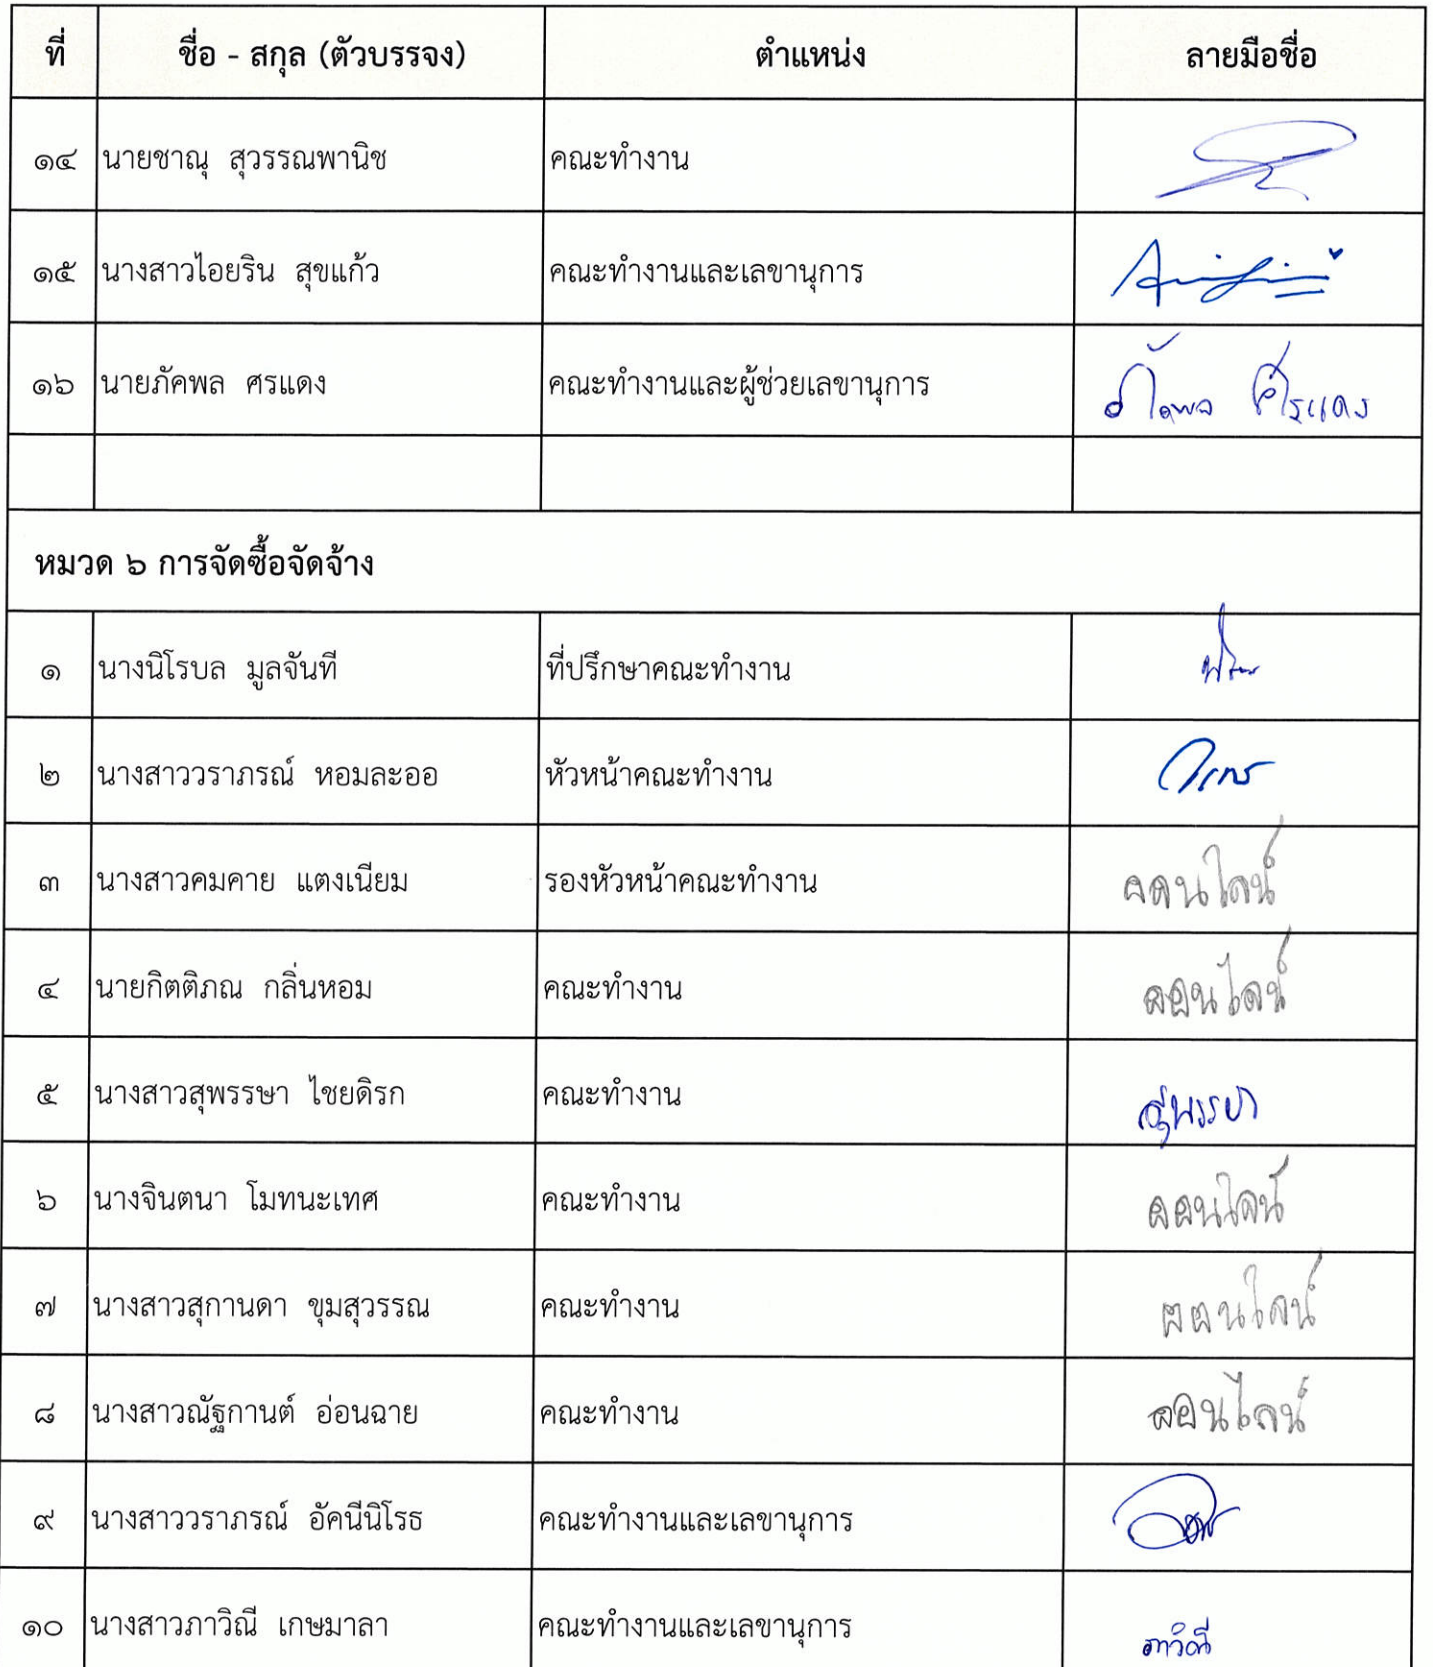 ที่ ชื่อ - สกุล (ตัวบรรจง) ตำแหน่ง ลายมือชื่อ
๑๔ นายชาณุ สุวรรณพานิช คณะทำงาน
๑๕ นางสาวไอยริน สุขแก้ว คณะทำงานและเลขานุการ
๑๖ นายภัคพล ศรแดง คณะทำงานและผู้ช่วยเลขานุการ ภัคพล ศรแดง
หมวด ๖ การจัดซื้อจัดจ้าง
๑ นางนิโรบล มูลจันที ที่ปรึกษาคณะทำงาน
๒ นางสาววราภรณ์ หอมละออ หัวหน้าคณะทำงาน
๓ นางสาวคมคาย แตงเนียม รองหัวหน้าคณะทำงาน ออนไลน์
๔ นายกิตติภณ กลิ่นหอม คณะทำงาน ออนไลน์
๕ นางสาวสุพรรษา ไชยดิรก คณะทำงาน สุพรรษา
๖ นางจินตนา โมทนะเทศ คณะทำงาน ออนไลน์
๗ นางสาวสุกานดา ขุมสุวรรณ คณะทำงาน ออนไลน์
๘ นางสาวณัฐกานต์ อ่อนฉาย คณะทำงาน ออนไลน์
๙ นางสาววราภรณ์ อัคนีนิโรธ คณะทำงานและเลขานุการ
๑๐ นางสาวภาวิณี เกษมาลา คณะทำงานและเลขานุการ ภาวิณี